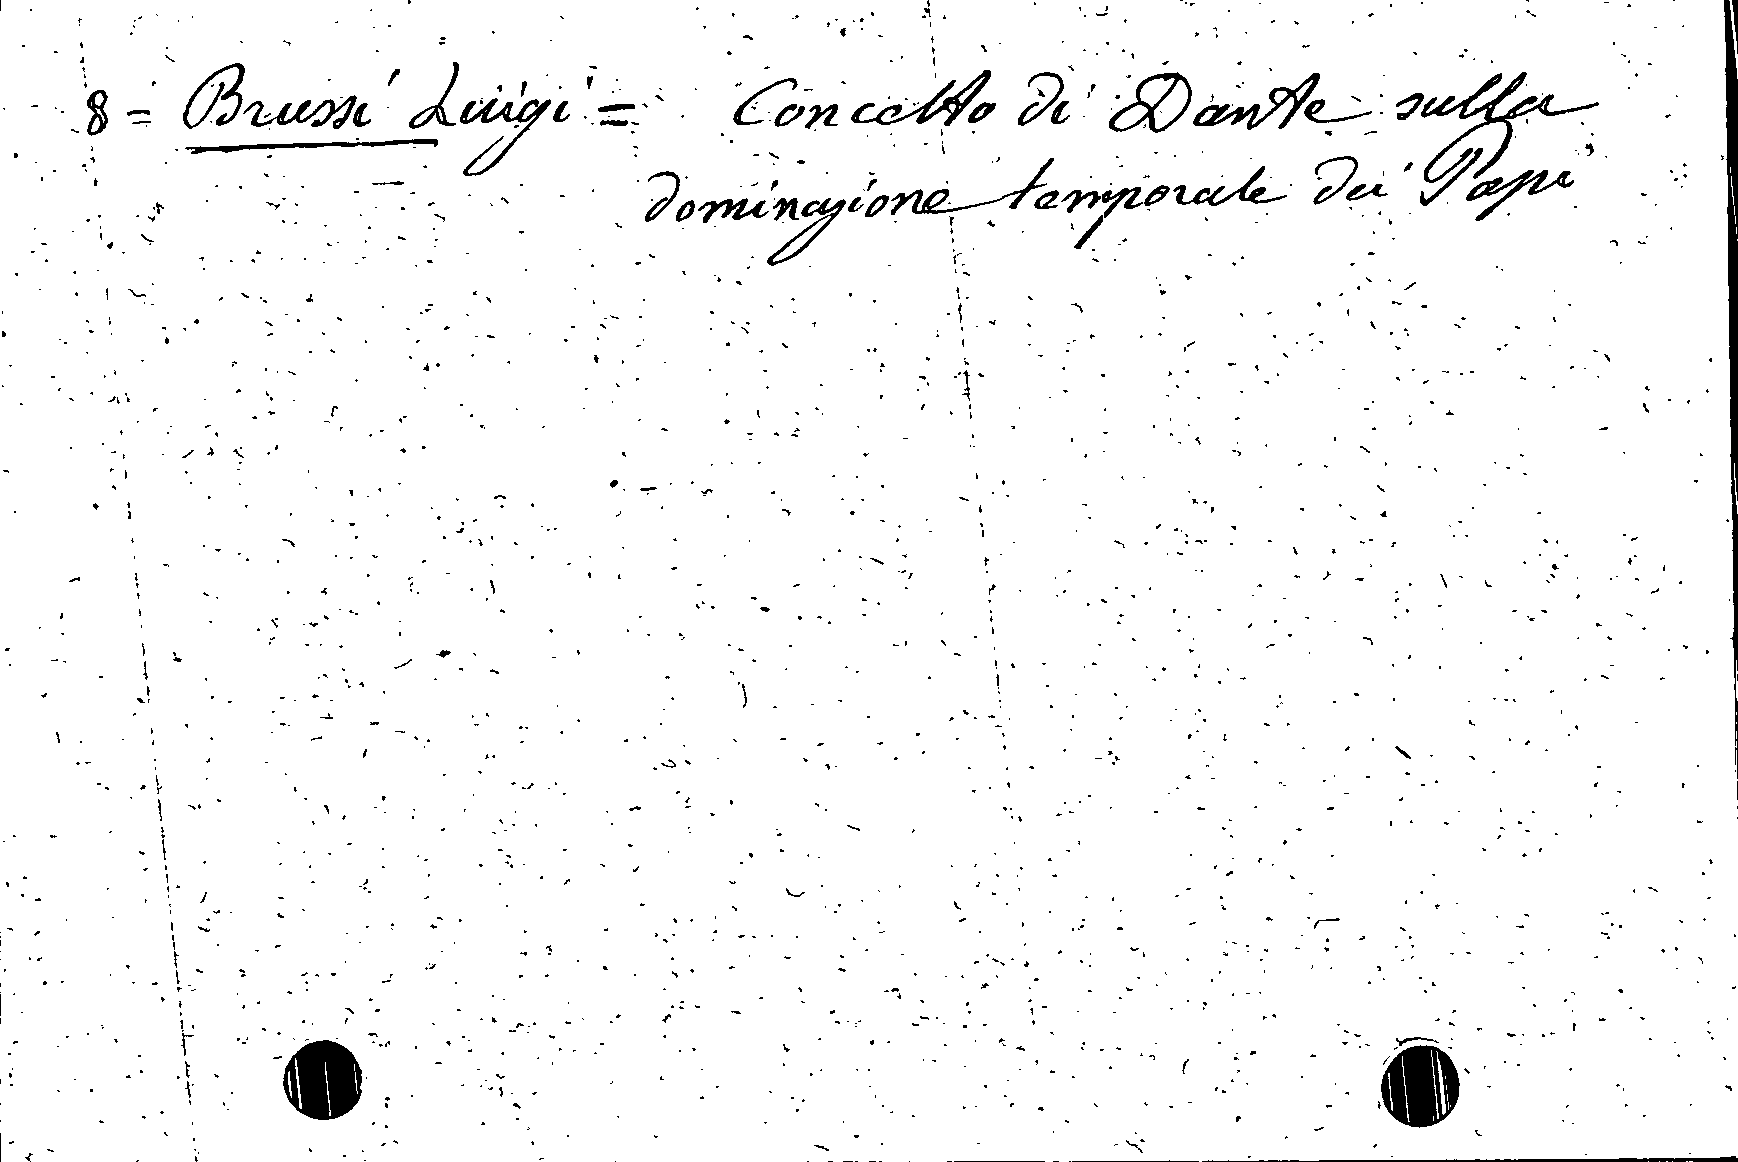 8 = Brussi Luigi = Concetto di Dante sulla
dominazione temporale dei Papi